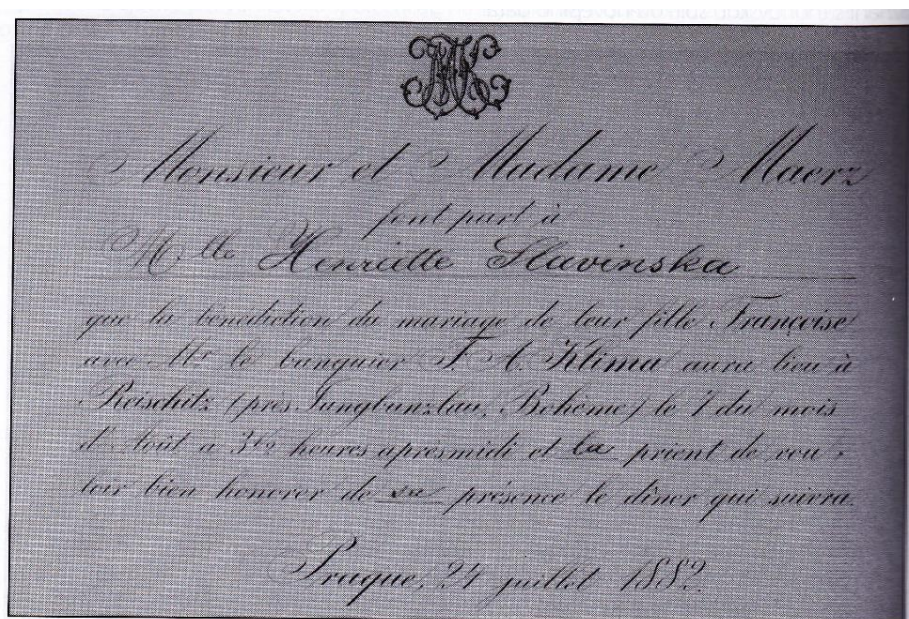 MK
Monsieur et Madame Maerz
font part à
Mlle Henriette Slavinska
que la bénédiction du mariage de leur fille Françoise
avec Mr le banquier F. A. Klima aura lieu à
Reischitz (près Jungbunzlau, Bohème) le 7 du mois
d'Août a 3 1/2 heures aprèsmidi et la prient de vou-
loir bien honorer de sa présence le dîner qui suivra.
Prague, 24 juillet 1882.